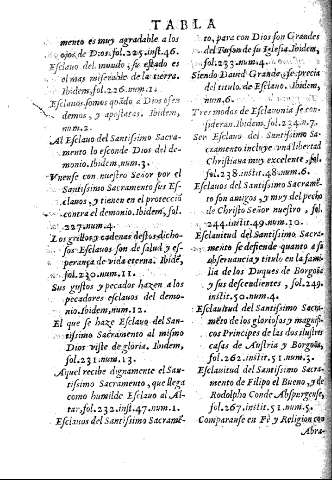 TABLA
mento es muy agradable a los
ojos de Dios. fol. 225. inst. 46.
Esclavo del mundo, su estado es
el mas miserable de la tierra.
Ibidem, fol. 226. num. 1.
Esclavos somos quãdo a Dios ofen
demos, y apostatas. Ibidem,
num. 2.
Al Esclavo del Santissimo Sacra-
mento lo esconde Dios del de-
monio. Ibidem, num. 3.
Vnense con nuestro Señor por el
Santissimo Sacramento sus Es-
clavos, y tienen en el protecciõ
contra el demonio. Ibidem, fol.
227. num. 4.
Los grillos y cadenas destos dicho-
sos Esclavos son de salud y es-
perança de vida eterna. Ibidẽ,
fol. 230. num. 11.
Sus gustos y pecados hazen a los
pecadores esclavos del demo-
nio. Ibidem, num. 12.
El que se haze Esclavo del San-
tissimo Sacramento al mismo
Dios viste de gloria. Ibidem,
fol. 231. num. 13.
Aquel recibe dignamente el San-
tissimo Sacramento, que llega
como humilde Esclavo al Al-
tar, fol. 232. inst. 47. num. 1.
Esclavos del Santissimo Sacramẽ-
to, para con Dios son Grandes
del Tuson de su Iglesia. Ibidem,
fol. 233. num. 4.
Siendo David Grande, se precia
del titulo de Esclavo. Ibidem,
num. 6.
Tres modos de Esclavonia se con-
sideran. Ibidem, fol. 234. n. 7.
Ser Esclavo del Santissimo Sa-
cramento incluye vna libertad
Christiana muy excelente, fol.
fol. 238. instit. 48. num. 6.
Esclavos del Santissimo Sacramẽ-
to son amigos, y muy del pecho
de Christo Señor nuestro, fol.
244. instit. 49. num. 10.
Esclavitud del Santissimo Sacra-
mento se defiende quanto a su
observancia y titulo en la fami-
lia de los Duques de Borgoña
y sus descendientes, fol. 249.
instit. 50. num. 4.
Esclavitud del Santissimo Sacra-
mẽto de los gloriosos y magnifi-
cos Principes de las dos ilustres
casas de Austria y Borgoña,
fol. 262. instit. 51. num. 3.
Esclavitud del Santissimo Sacra-
mento de Filipo el Bueno, y de
Rodolpho Conde Abspurgense,
fol. 267. instit. 51. num. 5.
Comparanse en Fè y Religion con
Abra-